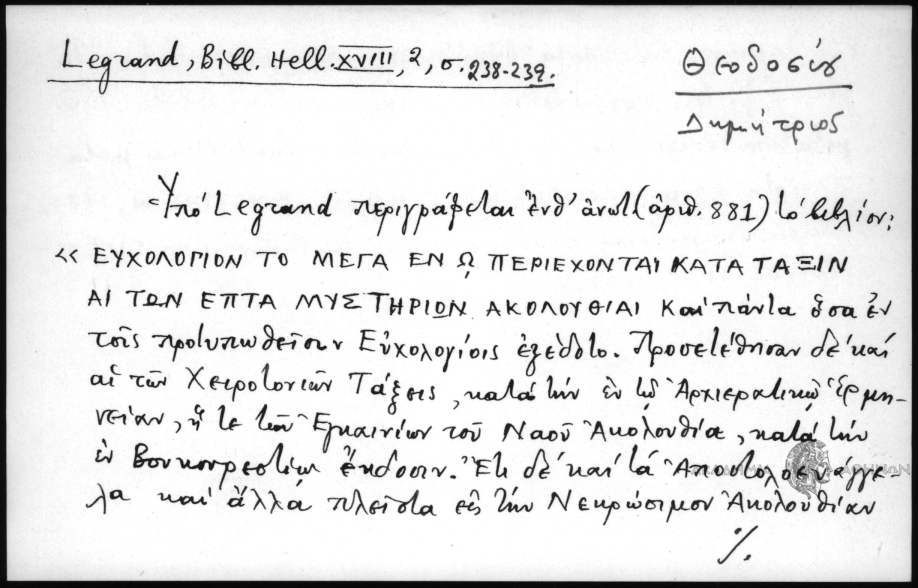 Legrand, Bibl. Hell. XVIII, 2, σ. 238-239.
Θεοδοσίου
Δημήτριος
Ὑπό Legrand περιγράφεται ἐνθ' ἀνωτ. (ἀριθ. 881) τό βιβλίον:
« ΕΥΧΟΛΟΓΙΟΝ ΤΟ ΜΕΓΑ ΕΝ ῼ ΠΕΡΙΕΧΟΝΤΑΙ ΚΑΤΑ ΤΑΞΙΝ
ΑΙ ΤΩΝ ΕΠΤΑ ΜΥΣΤΗΡΙΩΝ ΑΚΟΛΟΥΘΙΑΙ Καί πάντα ὅσα ἐν
τοῖς προτυπωθεῖσιν Εὐχολογίοις ἐξεδότο. Προσετέθησαν δέ καί
αἱ τῶν Χειροτονιῶν Τάξεις, κατά τήν ἐν τῷ Ἀρχιερατικῷ Ἑρμη-
νείαν, ἥ τε τῶν Ἐγκαινίων τοῦ Ναοῦ Ἀκολουθία, κατά τήν
ἐν Βουκουρεστίῳ ἔκδοσιν. Ἔτι δέ καί τά Ἀποστολοευάγγε-
λα καί ἄλλα πλεῖστα εἰς τήν Νεκρώσιμον Ἀκολουθίαν
%.